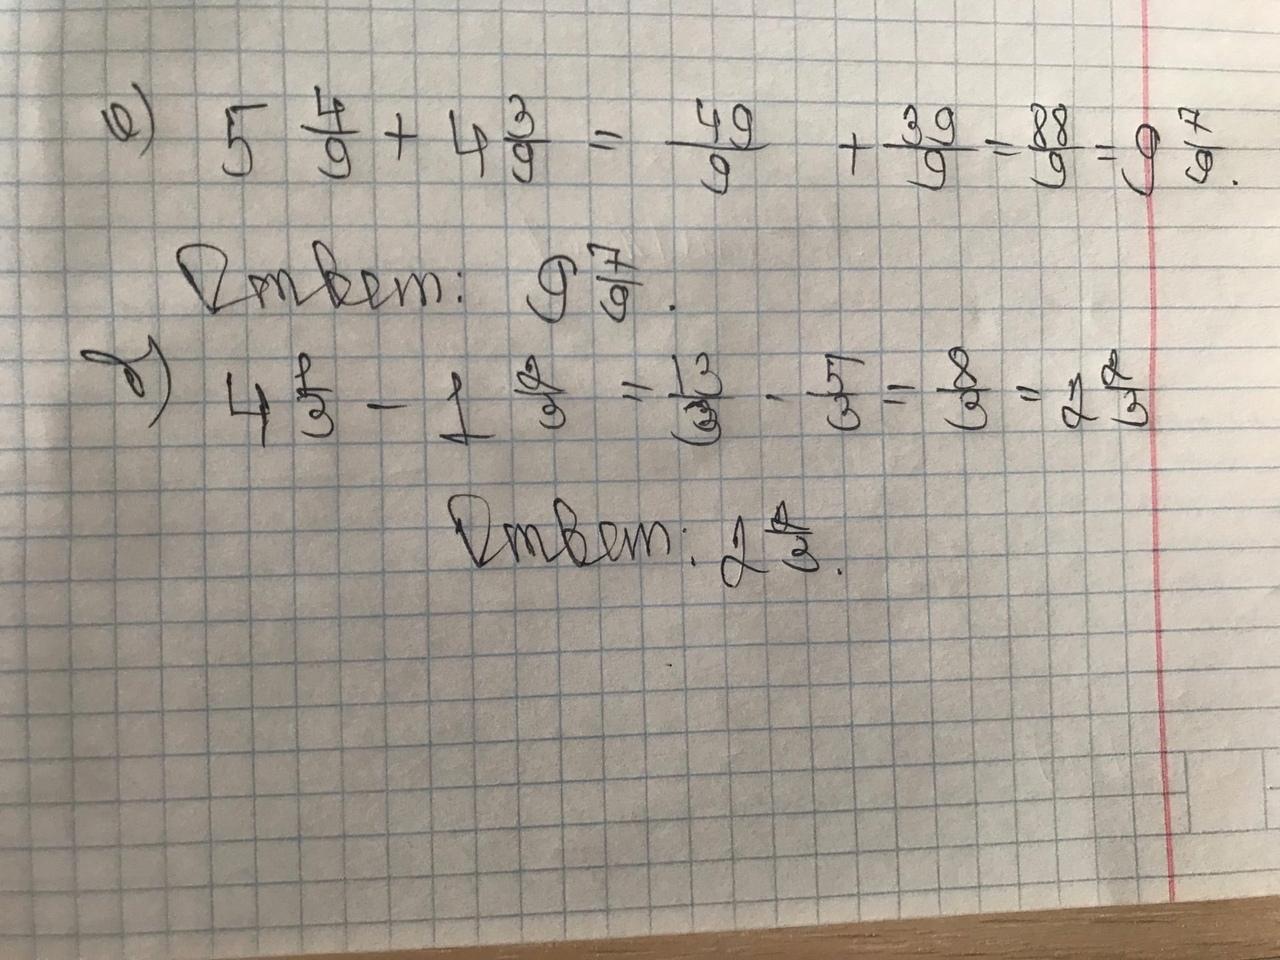 а) 5 4/9 + 4 3/9 = 49/9 + 39/9 = 88/9 = 9 7/9.
Ответ: 9 7/9.
б) 4 1/3 - 1 2/3 = 13/3 - 5/3 = 8/3 = 2 2/3
Ответ: 2 2/3.